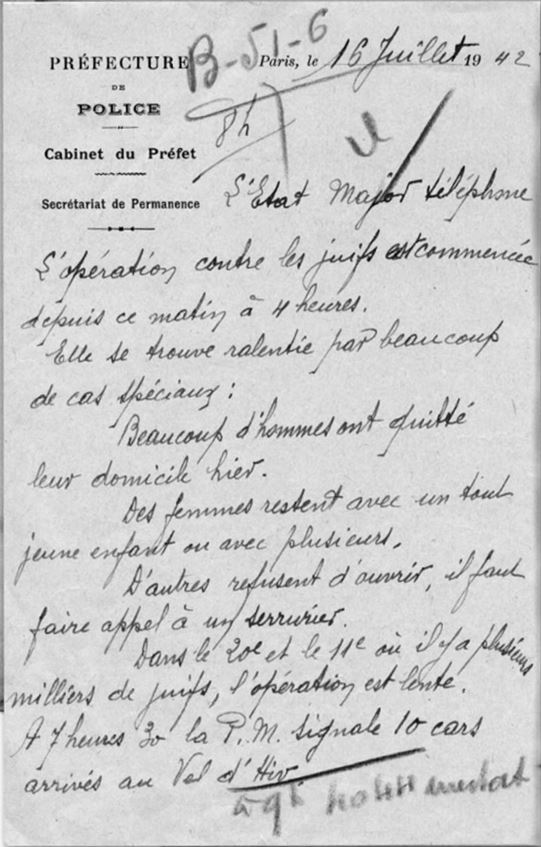 PRÉFECTURE
DE
POLICE
Cabinet du Préfet
Secrétariat de Permanence
B-51-6
Paris, le 16 Juillet 1942
8h
L'Etat Major téléphone
L'opération contre les juifs est commencée
depuis ce matin à 4 heures.
Elle se trouve ralentie par beaucoup
de cas spéciaux :
Beaucoup d'hommes ont quitté
leur domicile hier.
Des femmes restent avec un tout
jeune enfant ou avec plusieurs.
D'autres refusent d'ouvrir, il faut
faire appel à un serrurier.
Dans le 20e et le 11e où il y a plusieurs
milliers de juifs, l'opération est lente.
A 7 heures 30 la P.M. signale 10 cars
arrivés au Vel d'Hiv